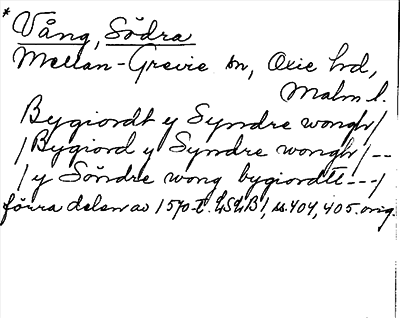 * Vång, Södra
Mellan-Grevie sn, Oxie hd,
Malm. l.
Bygiordt y Syndre wongh/
/Bygiord y Syndre wongh/--
/y Söndre wong bygiordtt---/
förra delen av 1570-t. LSLB, ss. 404, 405. orig.